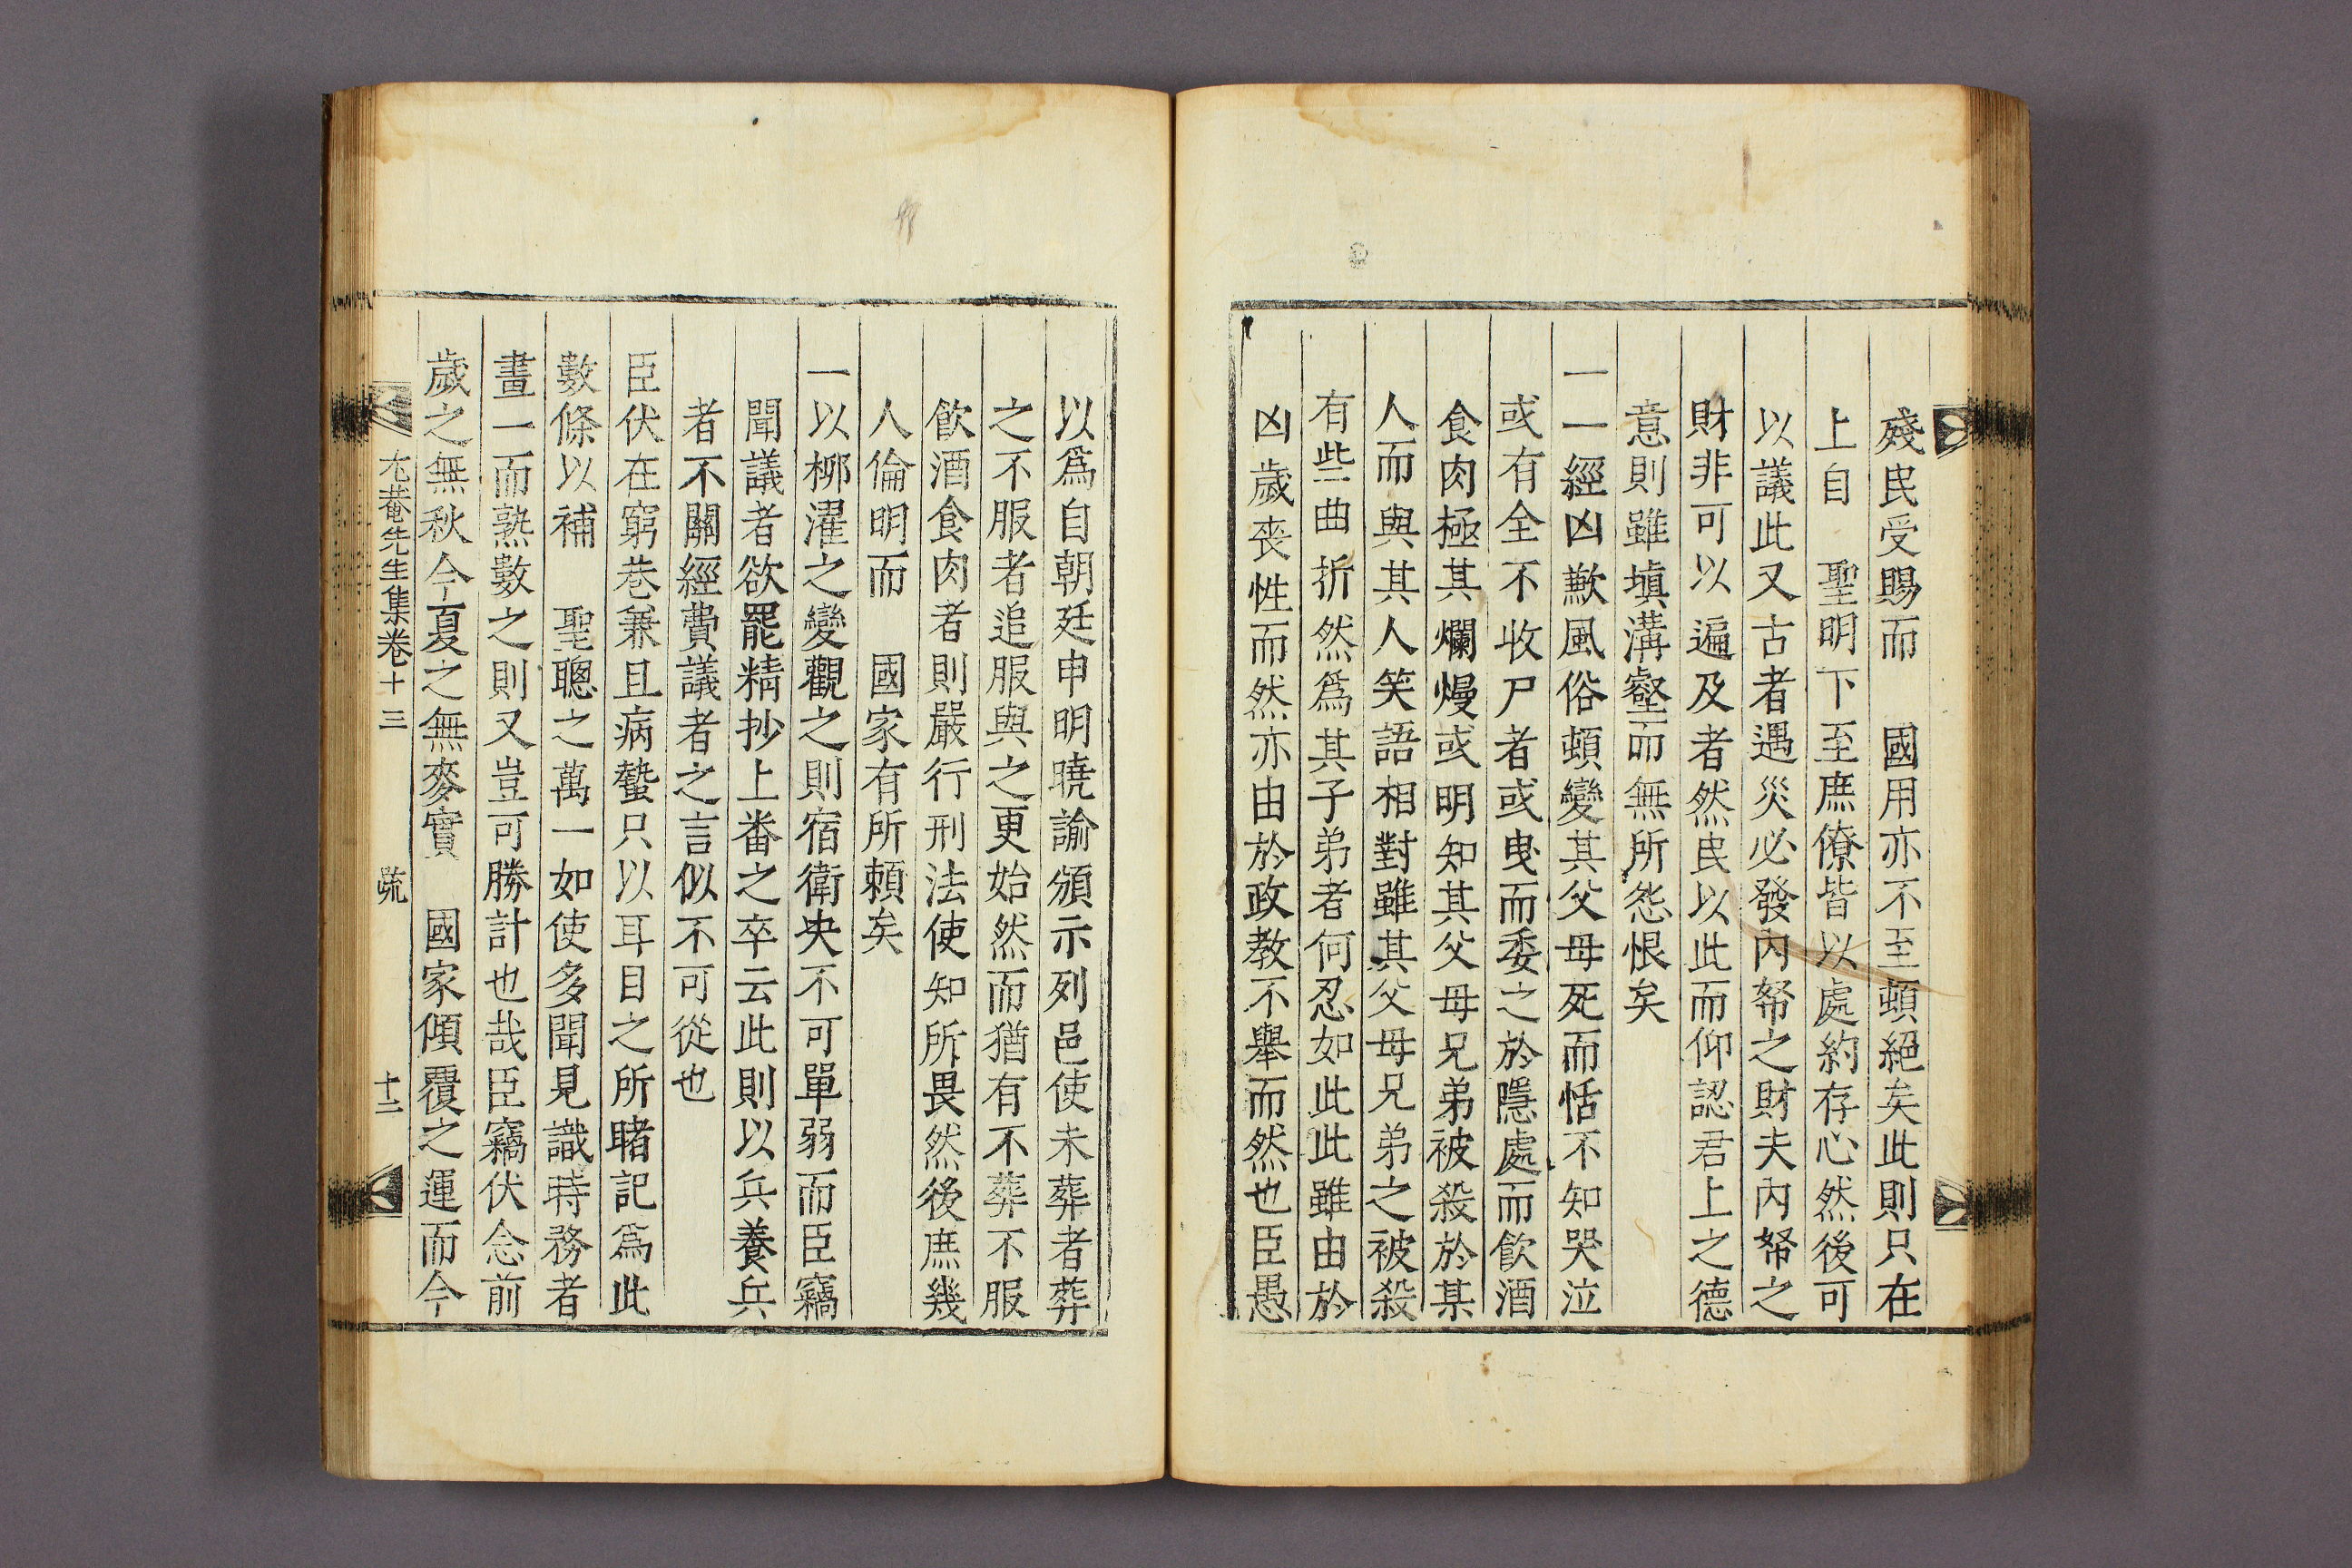 殘民受賜而　國用亦不至頓絕矣此則只在
上自　聖明下至庶僚皆以處約存心然後可
以議此又古者遇災必發內帑之財夫內帑之
財非可以遍及者然民以此而仰認君上之德
意則雖塡溝壑而無所怨恨矣
一一經凶歉風俗頓變其父母死而恬不知哭泣
或有全不收尸者或曳而委之於隱處而飮酒
食肉極其爛熳或明知其父母兄弟被殺於某
人而與其人笑語相對雖其父母兄弟之被殺
有些曲折然爲其子弟者何忍如此此雖由於
凶歲喪性而然亦由於政教不舉而然也臣愚
以爲自朝廷申明曉諭頒示列邑使未葬者葬
之不服者追服與之更始然而猶有不葬不服
飮酒食肉者則嚴行刑法使知所畏然後庶幾
人倫明而　國家有所賴矣
一以柳濯之變觀之則宿衛決不可單弱而臣竊
聞議者欲罷精抄上番之卒云此則以兵養兵
者不關經費議者之言似不可從也
臣伏在窮巷兼且病蟄只以耳目之所睹記爲此
數條以補　聖聰之萬一如使多聞見識時務者
畫一而熟數之則又豈可勝計也哉臣竊伏念前
歲之無秋今夏之無麥實　國家傾覆之運而今
尤菴先生集卷十三　疏　十二